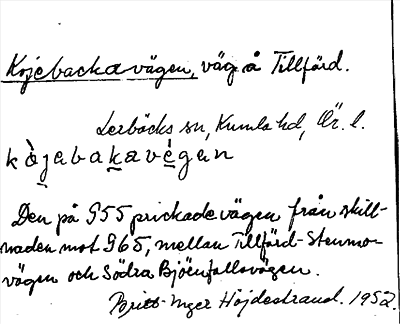 Kojebackavägen, väg å Tillfärd.
Lerbäcks sn, Kumla hd, Ör. l.
kòjabakavégan
Den på 955 prickade vägen från skill-
naden mot 965, mellan Tillfärd-Stenmo-
vägen och Södra Björnfallsvägen.
Britt-Inger Höjdestrand. 1952.